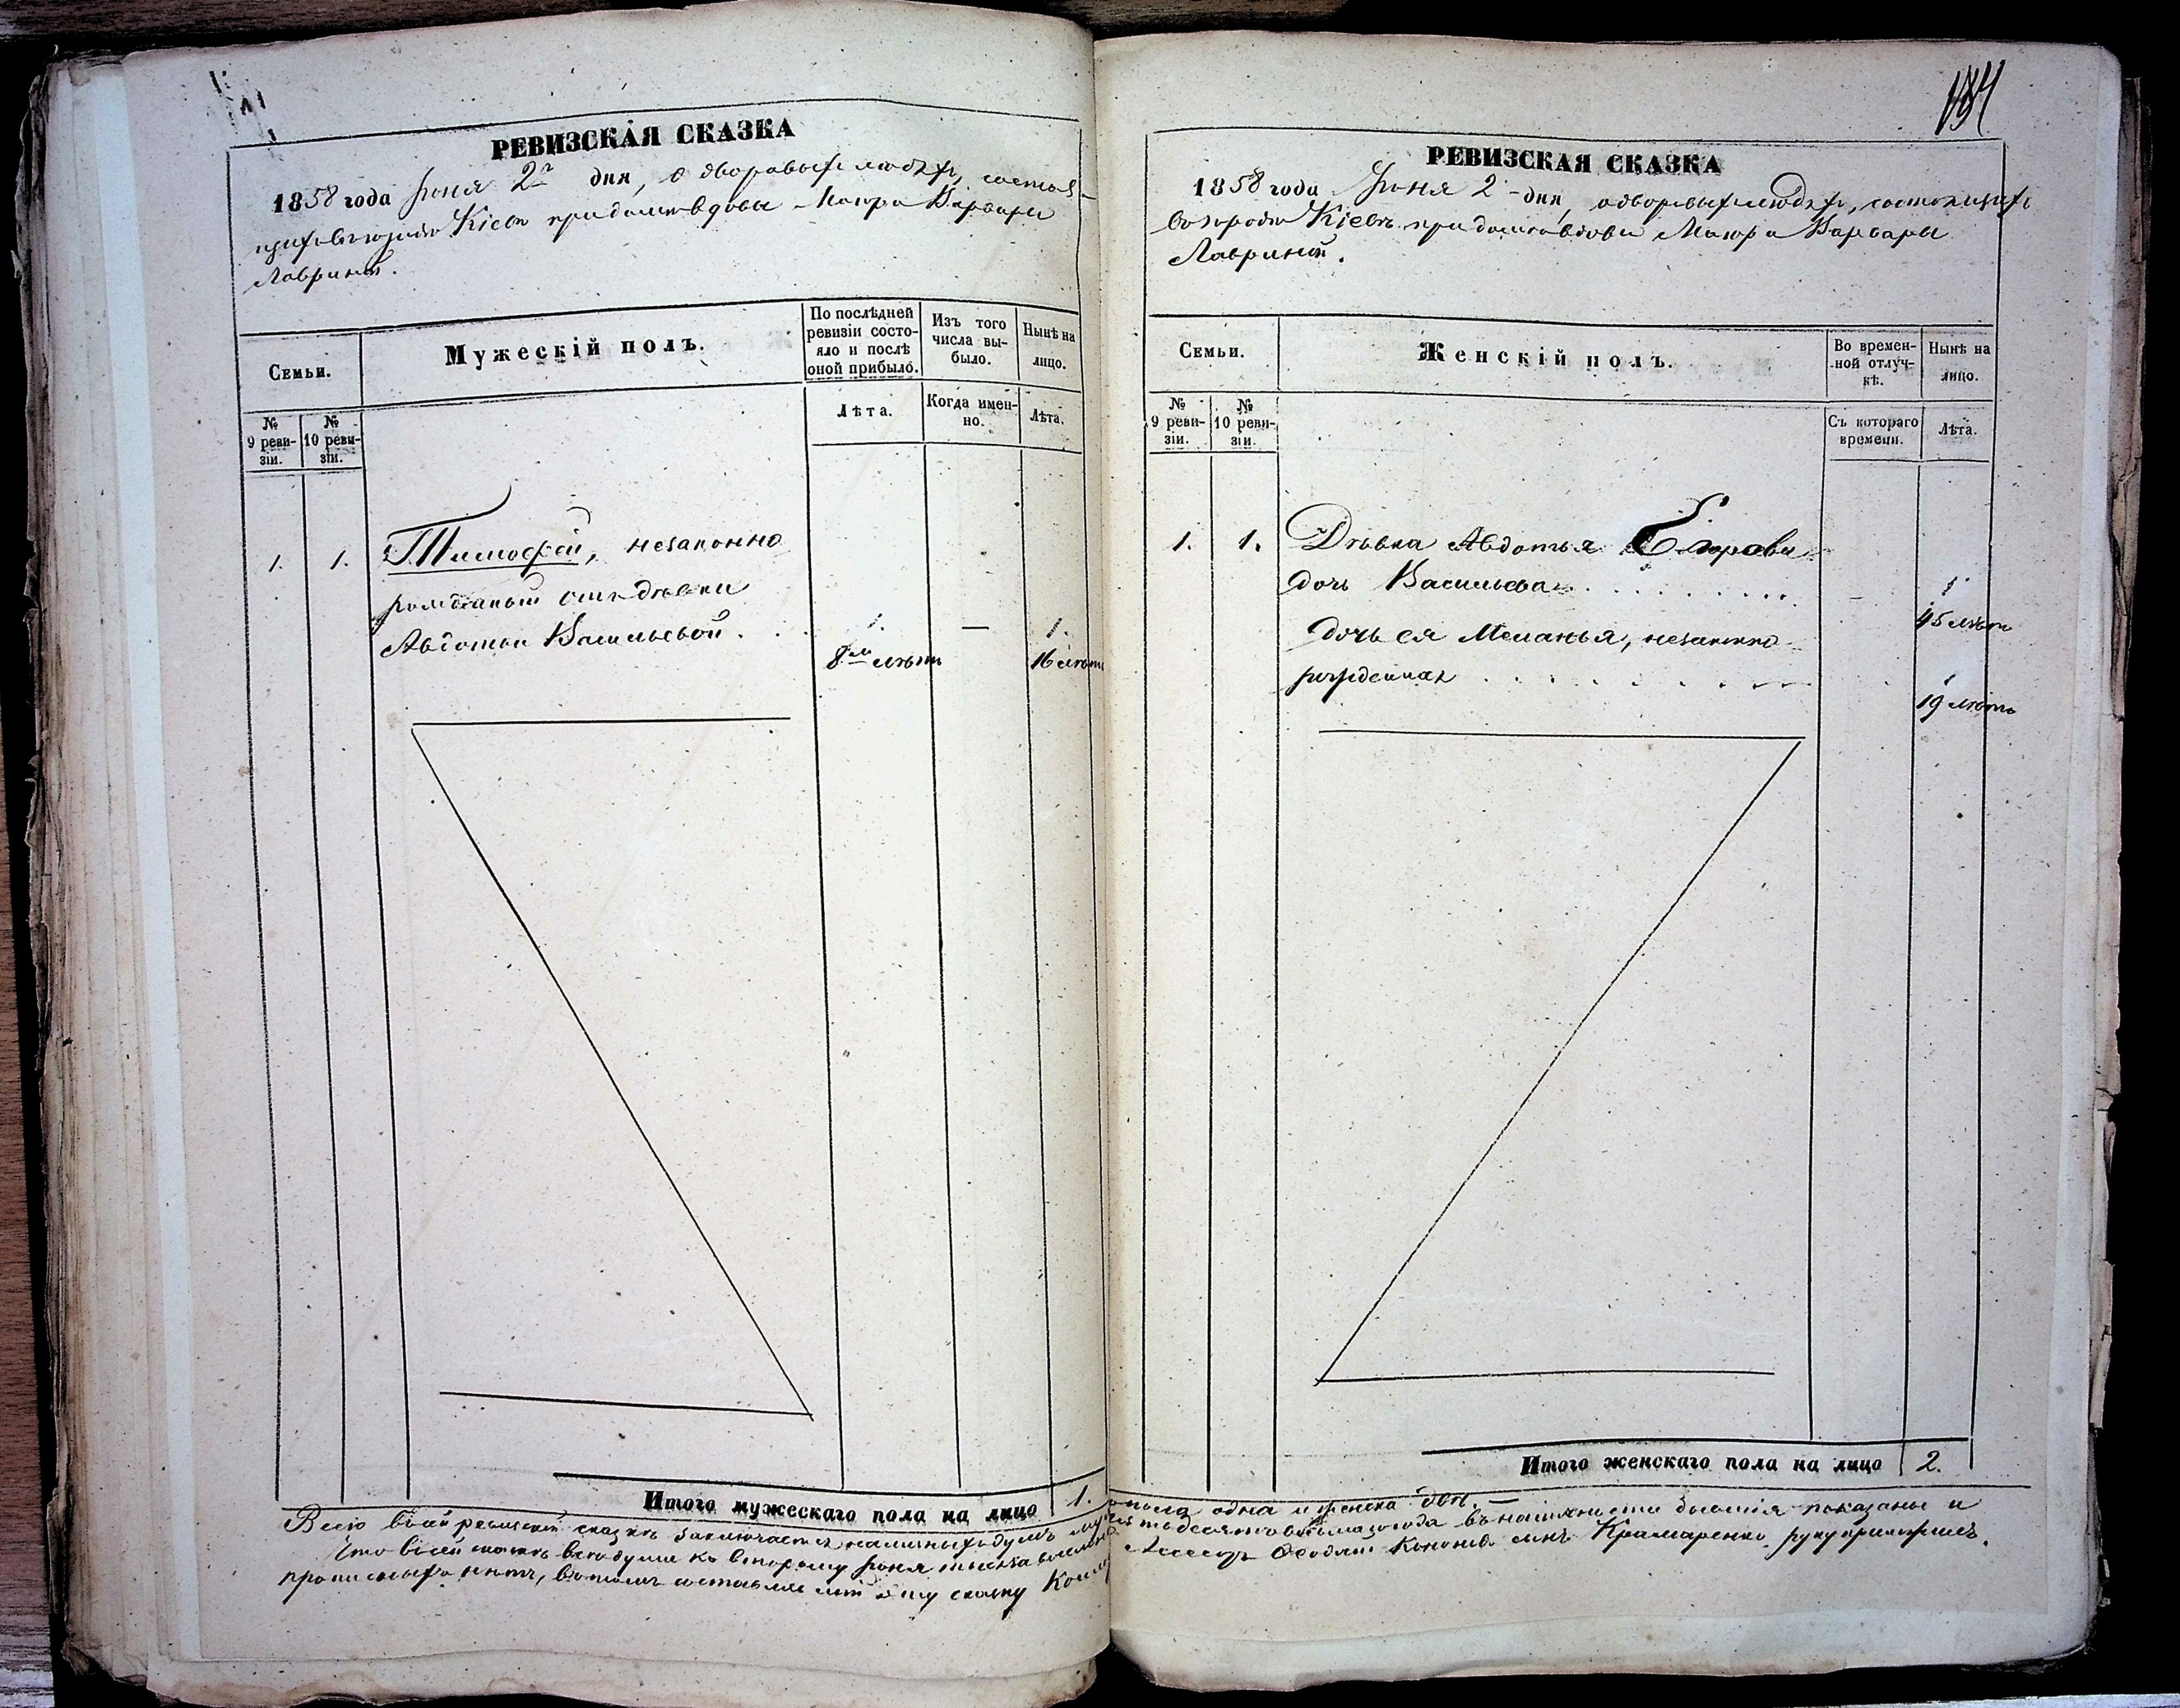 РЕВИЗСКАЯ СКАЗКА
1858 года Іюня 2го дня, о дворовыхъ людяхъ, состоя-
щихъ въ городѣ Кіевѣ при домѣ вдовы Маіора Варвары
Лавриной.
Семьи.
Мужескій полъ.
По послѣдней ревизіи состо-яло и послѣ оной прибыло.
Изъ того числа вы-было.
Нынѣ на лицо.
№ 9 реви-зіи.
№ 10 реви-зіи.
Лѣта.
Когда имен-но.
Лѣта.
1. 1. Тимофей, незаконно
рожденный отъ дѣвки
Авдотьи Васильевой . . 1. — 1.
8ми лѣтъ 16 лѣтъ
Итого мужескаго пола на лицо 1.
184
РЕВИЗСКАЯ СКАЗКА
1858 года Іюня 2 - дня, о дворовыхъ людяхъ, состоящихъ
въ городѣ Кіевѣ при домѣ вдовы Маіора Варвары
Лавриной.
Семьи.
Женскій полъ.
Во времен-ной отлуч-кѣ.
Нынѣ на лицо.
№ 9 реви-зіи.
№ 10 реви-зіи.
Съ котораго времени.
Лѣта.
1. 1. Дѣвка Авдотья Егорова
дочь Васильева . . . . . . . . — 1
45 лѣтъ
Дочь ея Меланья, незаконно
рожденная . . . . . . . 1
19 лѣтъ
Итого женскаго пола на лицо 2.
Всего въ сей ревизской сказкѣ заключается наличныхъ душъ муж. пола одна и женска двѣ. —
Что въ сей сказкѣ всѣ души ко второму Іюня тысяча восемь сотъ пятьдесятъ восьмаго года въ наличности бывшія показаны и
прописныхъ нѣтъ, въ томъ составлялъ сію сказку Ассесоръ Кононовъ сынъ Крамаренко руку приложилъ.